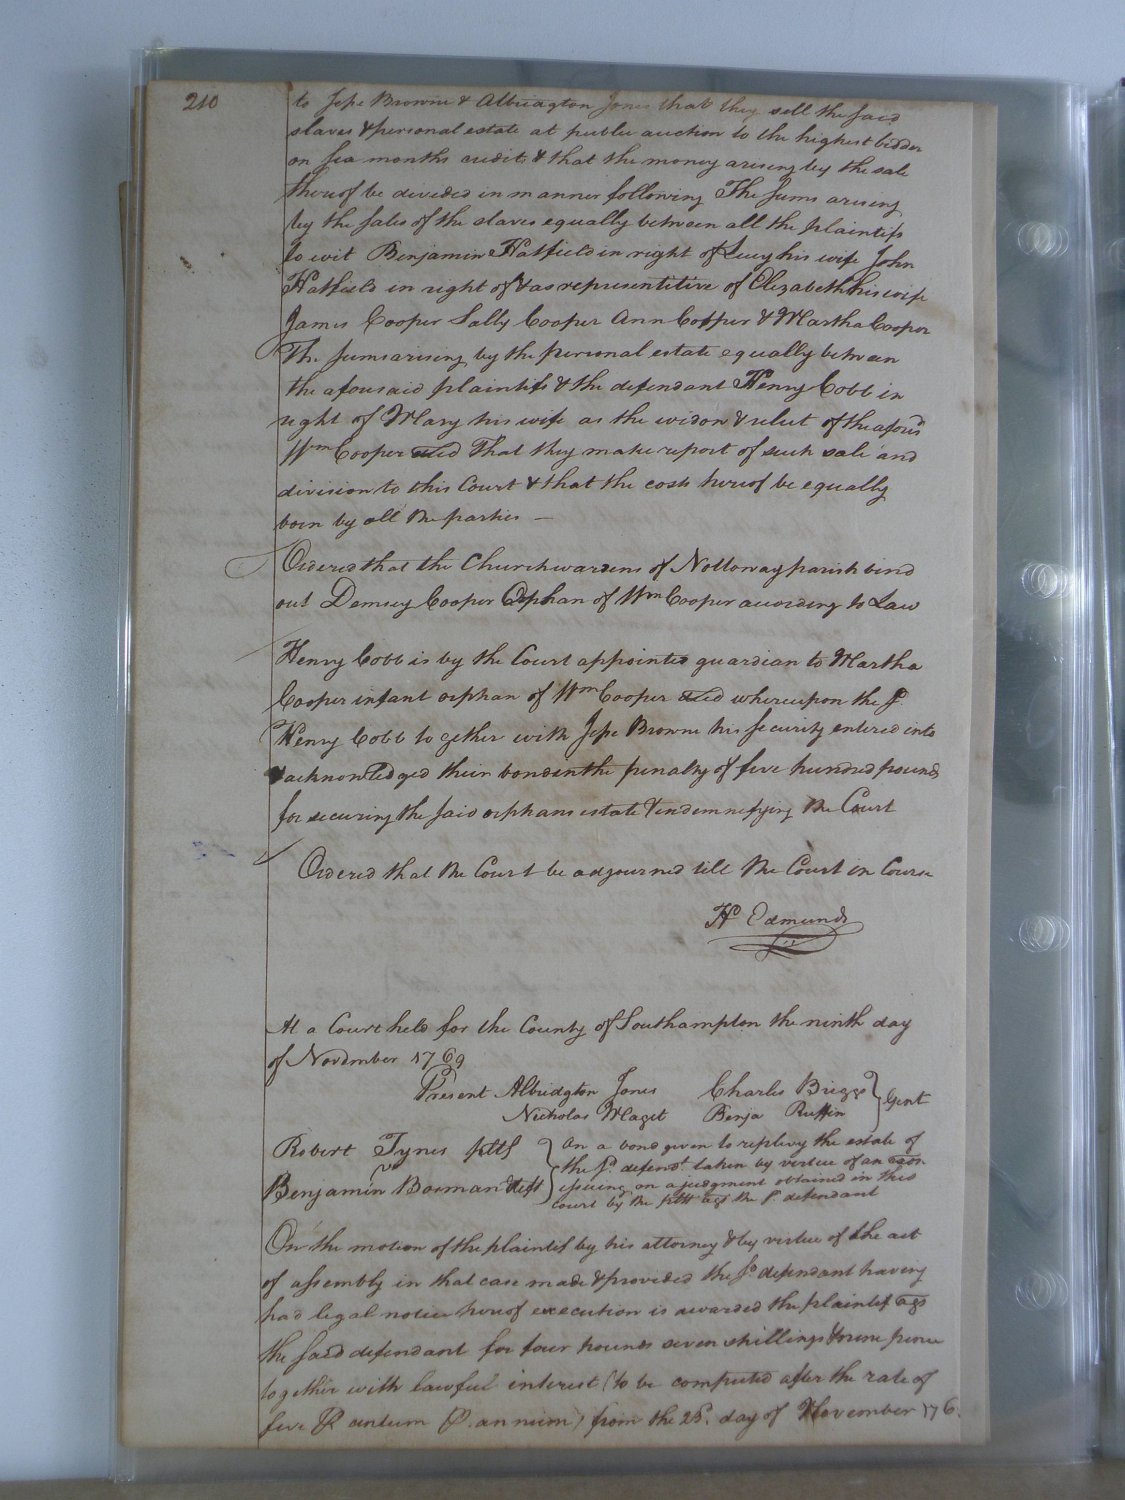 210
to Jesse Browne & Albridgton Jones that they sell the said
slaves & personal estate at public auction to the highest bidder
on six months credit & that the money arising by the sale
thereof be divided in manner following The sums arising
by the sales of the slaves equally between all the plaintifs
to wit Benjamin Hatfield in right of Lucy his wife John
Hatfield in right of & as representitive of Elizabeth his wife
James Cooper Sally Cooper Ann Cooper & Martha Cooper
The sums arising by the personal estate equally between
the aforesaid plaintifs & the defendant Henry Cobb in
right of Mary his wife as the widow & relict of the afores'd
Wm Cooper decd That they make report of such sale and
division to this Court & that the costs hereof be equally
born by all the parties —
Ordered that the Churchwardens of Nottoway parish bind
out Demsey Cooper Orphan of Wm Cooper according to Law
Henry Cobb is by the Court appointed guardian to Martha
Cooper infant orphan of Wm Cooper decd whereupon the sd.
Henry Cobb together with Jesse Browne his security entered into
& acknowledged their bond in the penalty of five hundred pounds
for securing the said orphans estate & indemnifying the Court
Ordered that the Court be adjourned till the Court in Course
H Edmunds
At a Court held for the County of Southampton the ninth day
of November 1769
Present Albridgton Jones Charles Briggs } Gent
Nicholas Maget Benja Ruffin
Robert Tynes pltf } On a bond given to replevy the estate of
the sd. defendt. taken by virtue of an exon
Benjamin Boxman deft } issuing on a judgment obtained in this
court by the pltf agt the sd. defendant
On the motion of the plaintif by his attorney & by virtue of the act
of assembly in that case made & provided the sd. defendant having
had legal notice hereof execution is awarded the plaintif agt
the said defendant for four pounds seven shillings & nine pence
together with lawful interest (to be computed after the rate of
five P centum P. annum) from the 25. day of November 176